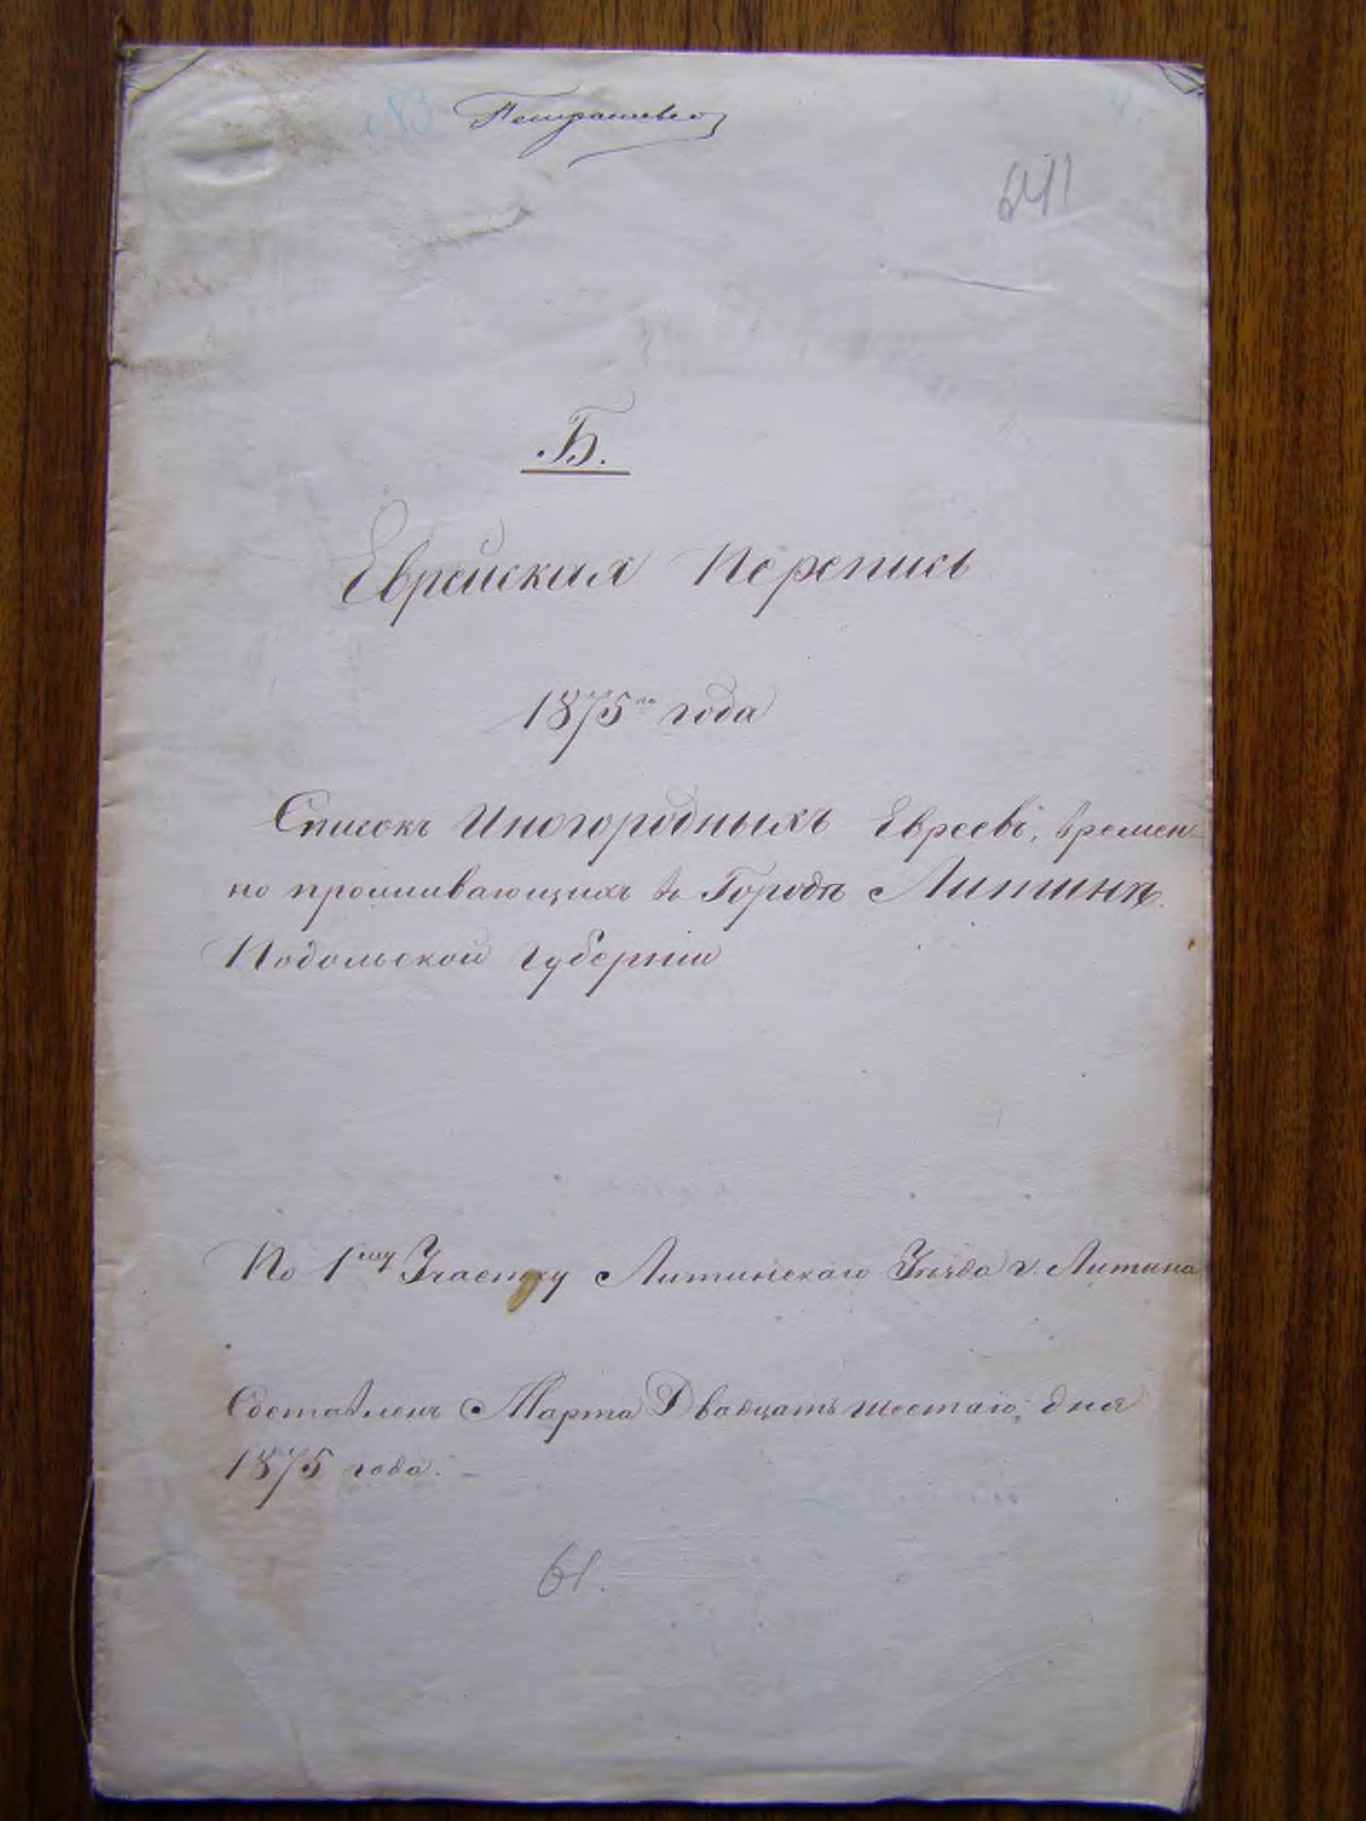 641
Б.
Еврейская Перепись
1875го года
Списокъ Иногородныхъ Евреевъ, времен-
но проживающихъ въ Городѣ Литинѣ.
Подольской Губерніи
По 1му Участку Литинскаго Уѣзда г. Литина
Составленъ Марта Двадцать шестаго, дня
1875 года. –
61.